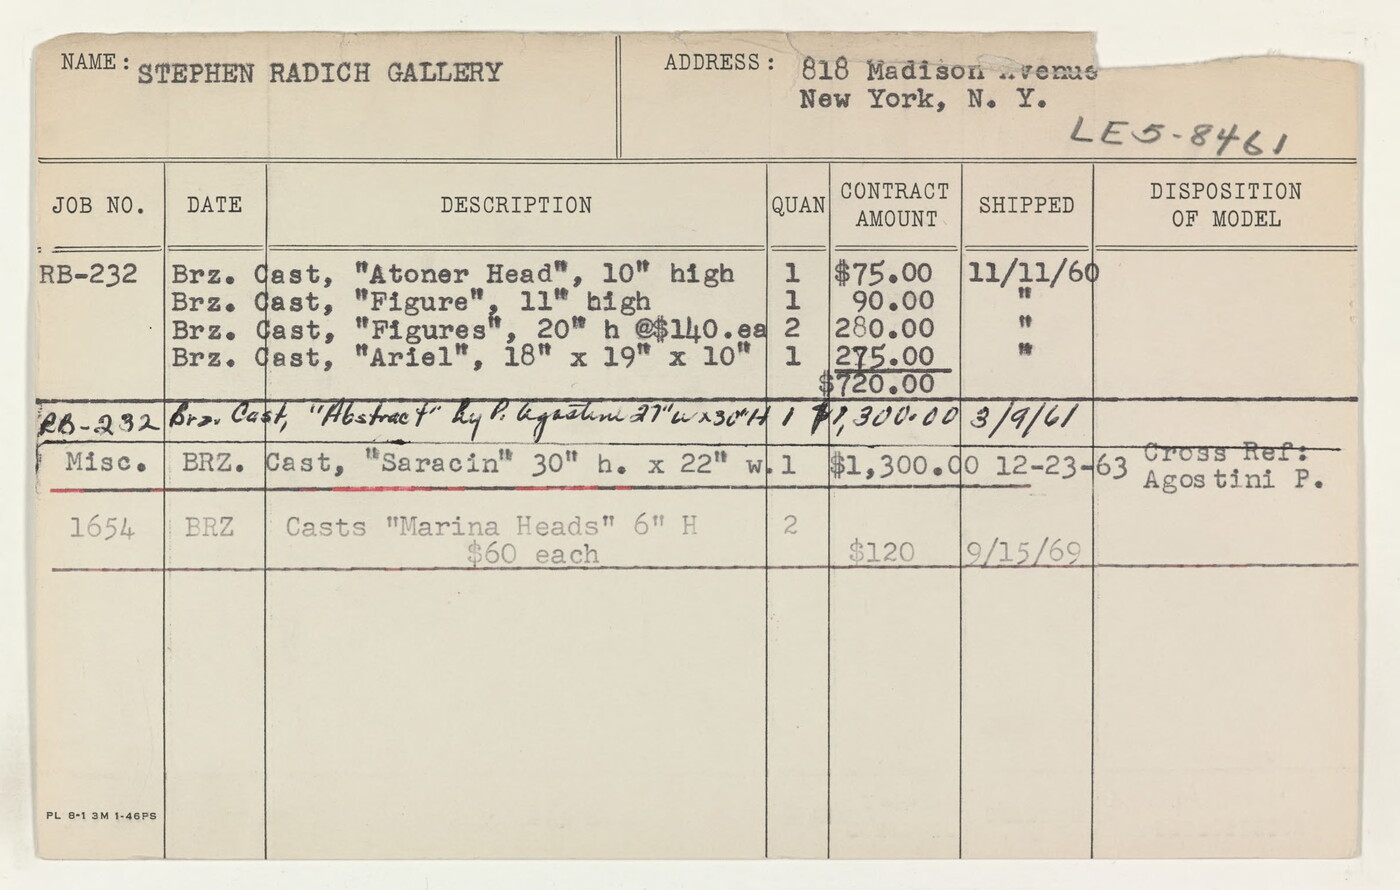 NAME: STEPHEN RADICH GALLERY
ADDRESS: 818 Madison Avenue
New York, N. Y.
LE5-8461
JOB NO. DATE DESCRIPTION QUAN CONTRACT AMOUNT SHIPPED DISPOSITION OF MODEL
RB-232 Brz. Cast, "Atoner Head", 10" high 1 $75.00 11/11/60
Brz. Cast, "Figure", 11" high 1 90.00 "
Brz. Cast, "Figures", 20" h @$140.ea 2 280.00 "
Brz. Cast, "Ariel", 18" x 19" x 10" 1 275.00 "
$720.00
RB-232 Brz. Cast, "Abstract" by P. Agostini 27"w x 30"H 1 $1,300.00 3/9/61
Misc. BRZ. Cast, "Saracin" 30" h. x 22" w. 1 $1,300.00 12-23-63 Cross Ref:
Agostini P.
1654 BRZ Casts "Marina Heads" 6" H 2
$60 each $120 9/15/69
PL 8-1 3M 1-46PS